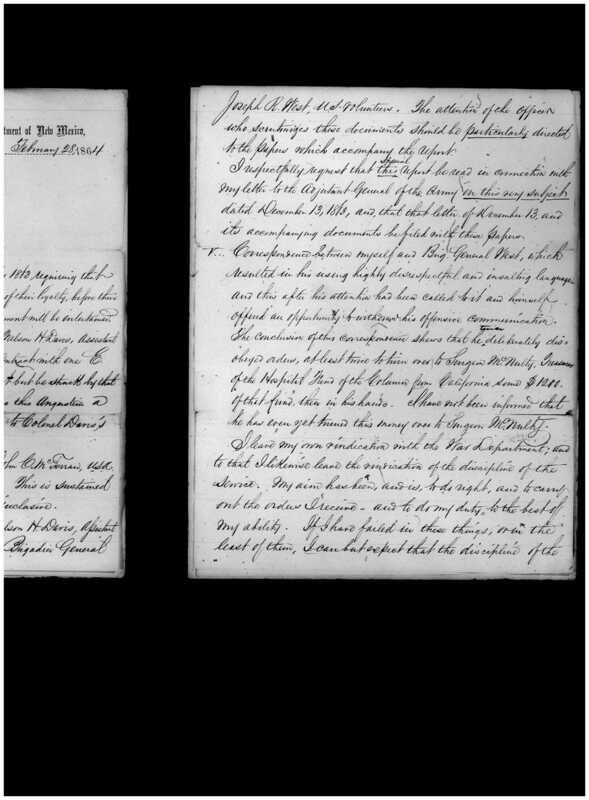 tment of New Mexico,
February 28, 1864
1863, requiring that
of their loyalty, before their
ment will be entertained
Nelson H. Davis, Assistant
with one E
t but be struck by that
this Augustin a
to Colonel Davis's
C. McFerran, USA.
This is sustained
inclusive.
lson H. Davis, Assistant
Brigadier General
Joseph R. West, U.S. Volunteers. The attention of the Officer
who scrutinizes these documents should be particularly directed
to the papers which accompany the report.
I respectfully request that this special report be read in connection with
my letter to the Adjutant-General of the Army on this very subject
dated December 13, 1863, and, that that letter of December 13, and
its accompanying documents be filed with these papers.
V... Correspondence between myself and Brig. General West, which
resulted in his using highly disrespectful and insulting language
and this after his attention had been called to it and himself
offered an opportunity to withdraw his offensive communication.
The conclusion of this correspondence shows that he deliberately dis-
obeyed orders, at least twice to turn over to Surgeon McNulty, Treasurer
of the Hospital Fund of the Column from California some $1200.
of that fund then in his hands. I have not been informed that
he has even yet turned this money over to Surgeon McNulty.
I leave my own vindication with the War Department; and
to that I likewise leave the vindication of the discipline of the
service. My aim has been, and is, to do right, and to carry
out the orders I receive - and to do my duty, to the best of
my ability. If I have failed in these things, or in the
least of them, I can but expect that the discipline of the